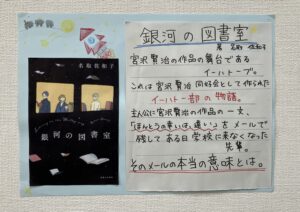 銀河の図書室
著 名取 佐和子
宮沢賢治の作品の舞台である
イーハトーブ。
これは宮沢賢治 同好会として作られた
イーハトー部の物語。
主人公に宮沢賢治の作品の一文、
「ほんとうの幸いは、遠い」をメールで
残してある日学校に来なくなった
先輩。
そのメールの本当の意味とは。
名取佐和子
銀河の図書室